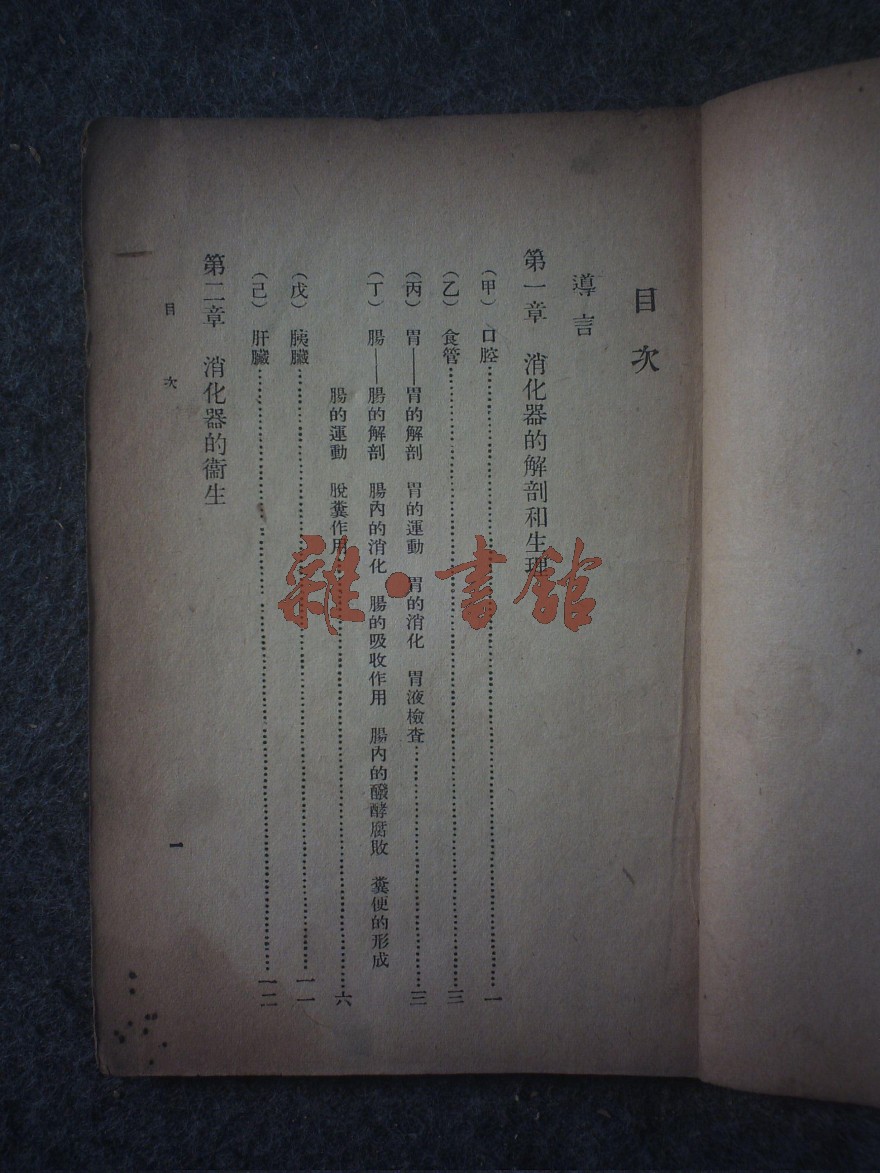 目次
導言
第一章　消化器的解剖和生理
（甲）　口腔……一
（乙）　食管……三
（丙）　胃——胃的解剖　胃的運動　胃的消化　胃液檢查……三
（丁）　腸——腸的解剖　腸內的消化　腸的吸收作用　腸內的醱酵腐敗　糞便的形成
腸的運動　脫糞作用……六
（戊）　胰臟……一一
（己）　肝臟……一二
第二章　消化器的衞生
目次
一
雜·書館